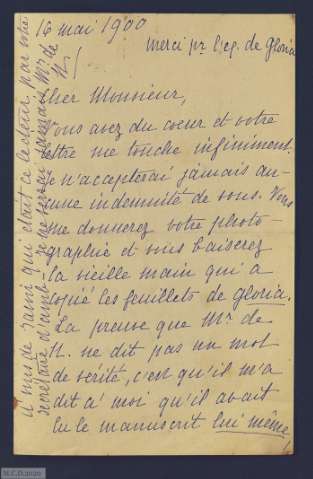 16 mai 1900
merci pr l'eg. de Gloria
Cher Monsieur,
Vous avez du coeur et votre
lettre me touche infiniment.
Je n'accepterai jamais au-
cune indemnité de vous. Vous
me donnerez votre photo-
graphie et vous baiserez
la vieille main qui a
copié les feuillets de Gloria.
La preuve que Mr. de
N. ne dit pas un mot
de vérité, c'est qu'il m'a
dit à moi qu'il avait
lu le manuscrit lui même
qui était ce lecteur, par votre
secrétaire d'amb. Je ne serai jamais Mr de
N.